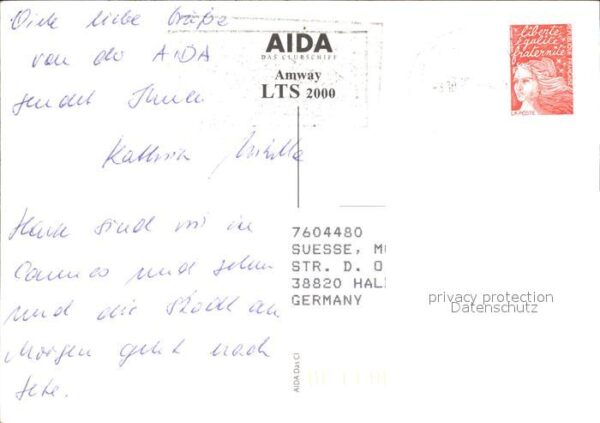 Viele liebe Grüße
von der AIDA
sendet Ihnen
Kathrin
Heute sind wir in
Cannes und sehen
und die Stadt an
Morgen geht nach
Sete.
AIDA
DAS CLUBSCHIFF
Amway
LTS 2000
liberté
égalité
fraternité
LA POSTE
7604480
SUESSE, M
STR. D. O
38820 HAL
GERMANY
privacy protection
Datenschutz
AIDA Das Cl